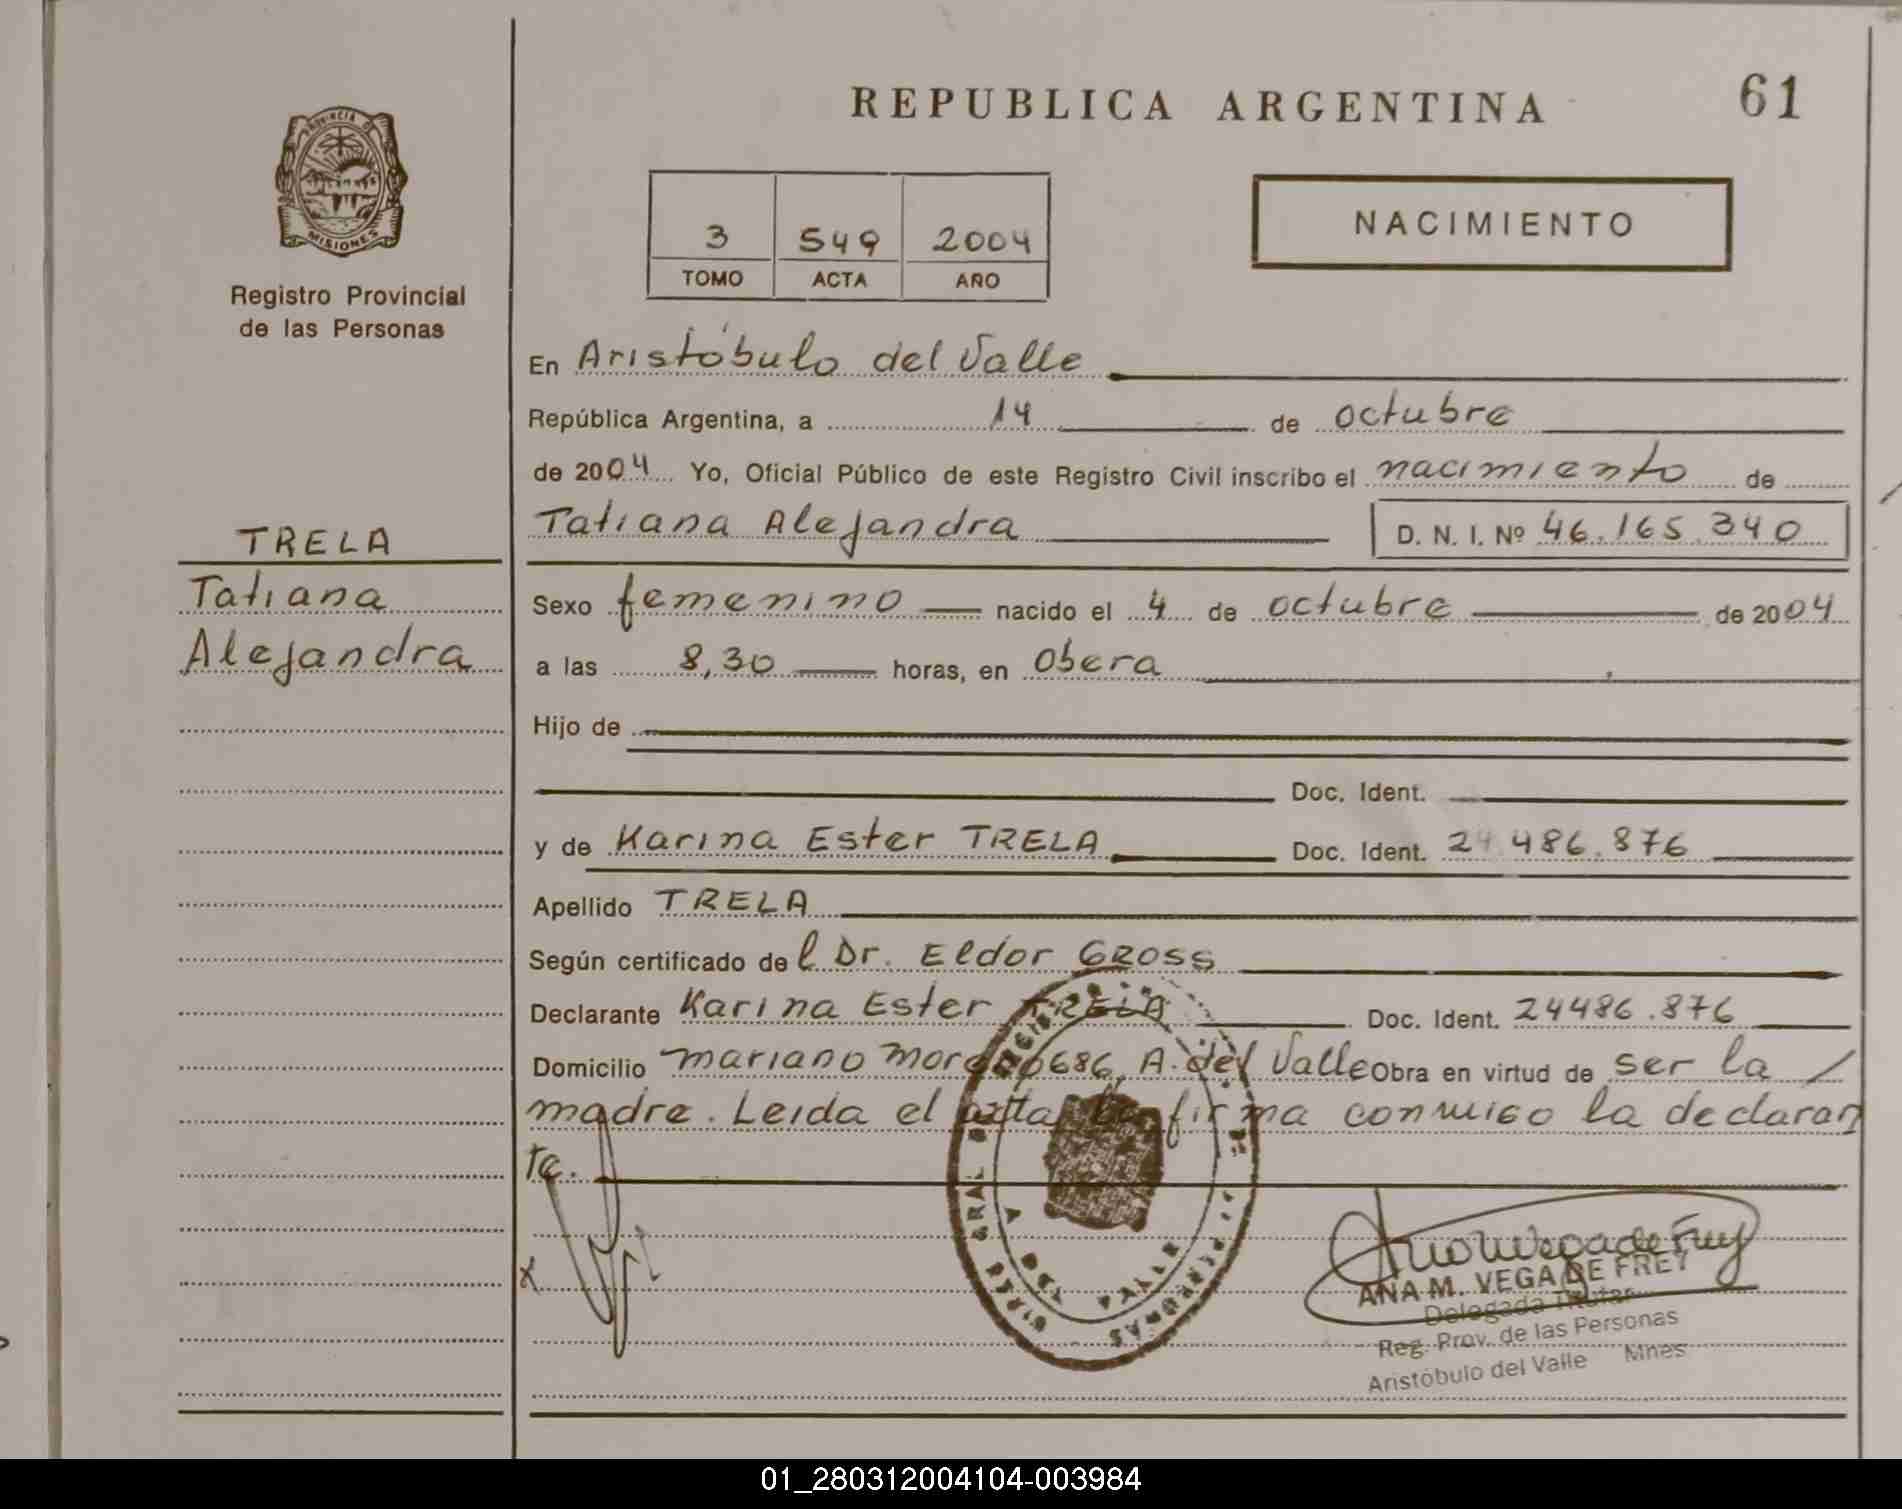 REPUBLICA ARGENTINA
61
PROVINCIA D
MISIONES
Registro Provincial
de las Personas
3 549 2004
TOMO ACTA AÑO
NACIMIENTO
En Aristóbulo del Valle
República Argentina, a 14 de octubre
de 2004 Yo, Oficial Público de este Registro Civil inscribo el nacimiento de
Tatiana Alejandra D. N. I. Nº 46.165.340
TRELA
Tatiana
Alejandra
Sexo femenino nacido el 4 de octubre de 2004
a las 8,30 horas, en Obera
Hijo de
Doc. Ident.
y de Karina Ester TRELA Doc. Ident. 24.486.876
Apellido TRELA
Según certificado del Dr. Eldor GROSS
Declarante Karina Ester TRELA Doc. Ident. 24486.876
Domicilio mariano moreno 686, A. del Valle Obra en virtud de ser la /
madre. Leida el acta la firma conmigo la declaran
te.
x
ANA M. VEGA DE FREY
Delegada Titular
Reg. Prov. de las Personas
Aristóbulo del Valle Mnes
01_280312004104-003984